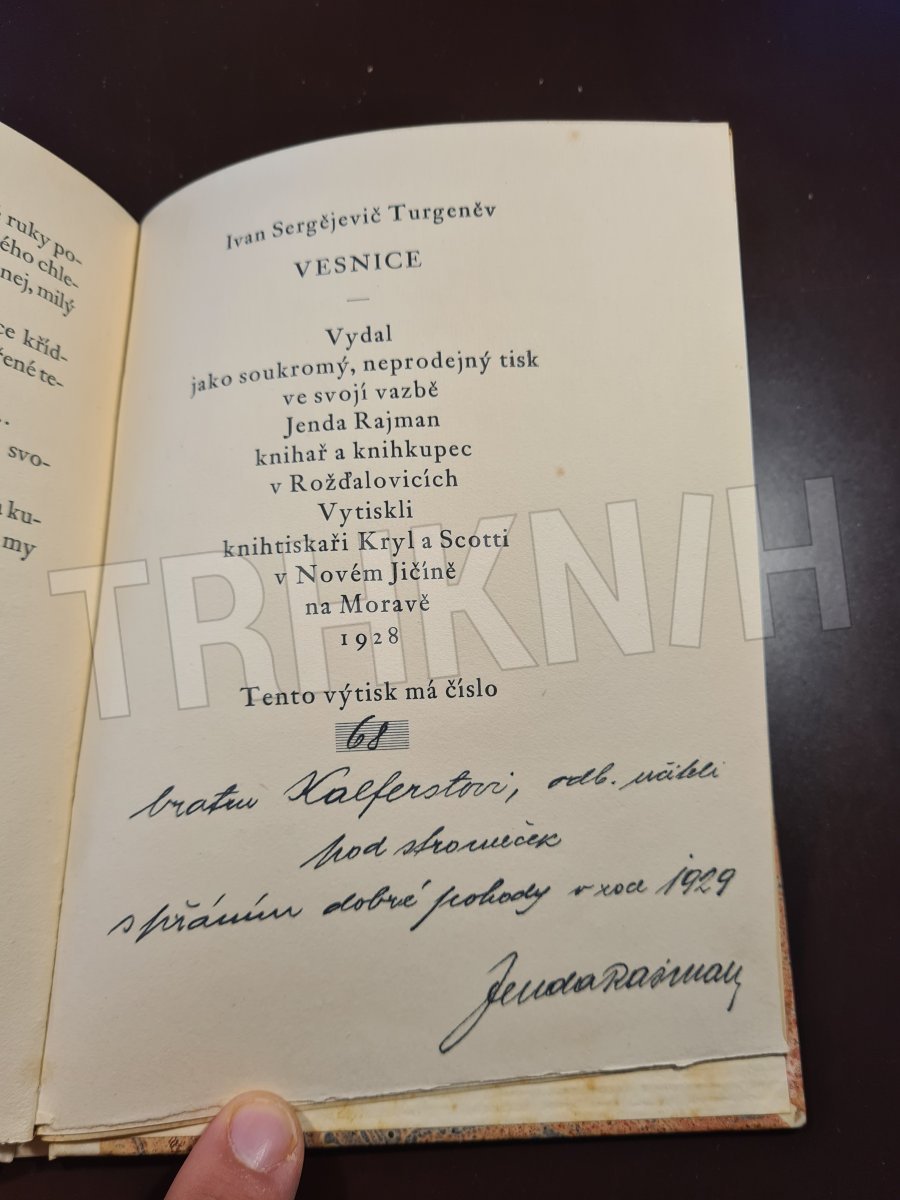 ruky po-
ého chle-
nej, milý
ce kříd-
ené te-
svo-
ku-
my
Ivan Sergějevič Turgeněv
VESNICE
Vydal
jako soukromý, neprodejný tisk
ve svojí vazbě
Jenda Rajman
knihař a knihkupec
v Rožďalovicích
Vytiskli
knihtiskaři Kryl a Scotti
v Novém Jičíně
na Moravě
1928
Tento výtisk má číslo
68
bratru Kalferstovi, odb. učiteli
pod stromeček
s přáním dobré pohody v roce 1929
Jenda Rajman
TRHKNIH